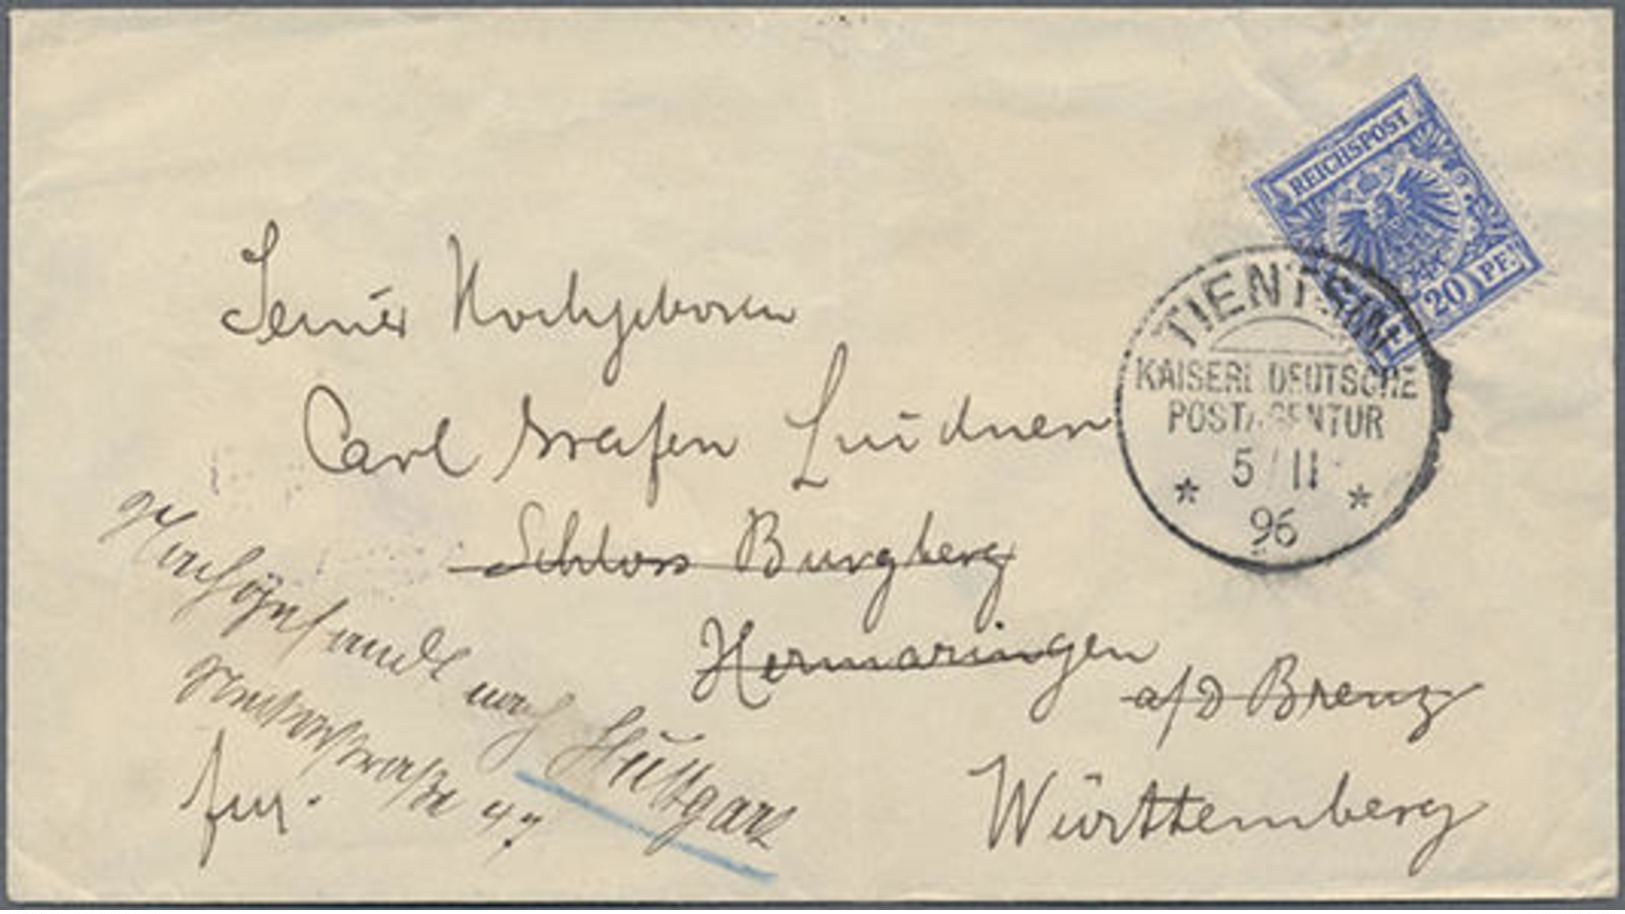 REICHSPOST
20 PF.
TIENTSIN
KAISERL DEUTSCHE
POSTAGENTUR
5/11
96
Seiner Hochgeboren
Carl Grafen Linden
Schloss Burgberg
Hermaringen
a/d Brenz
Württemberg
Nachgesandt nach Stuttgart
47